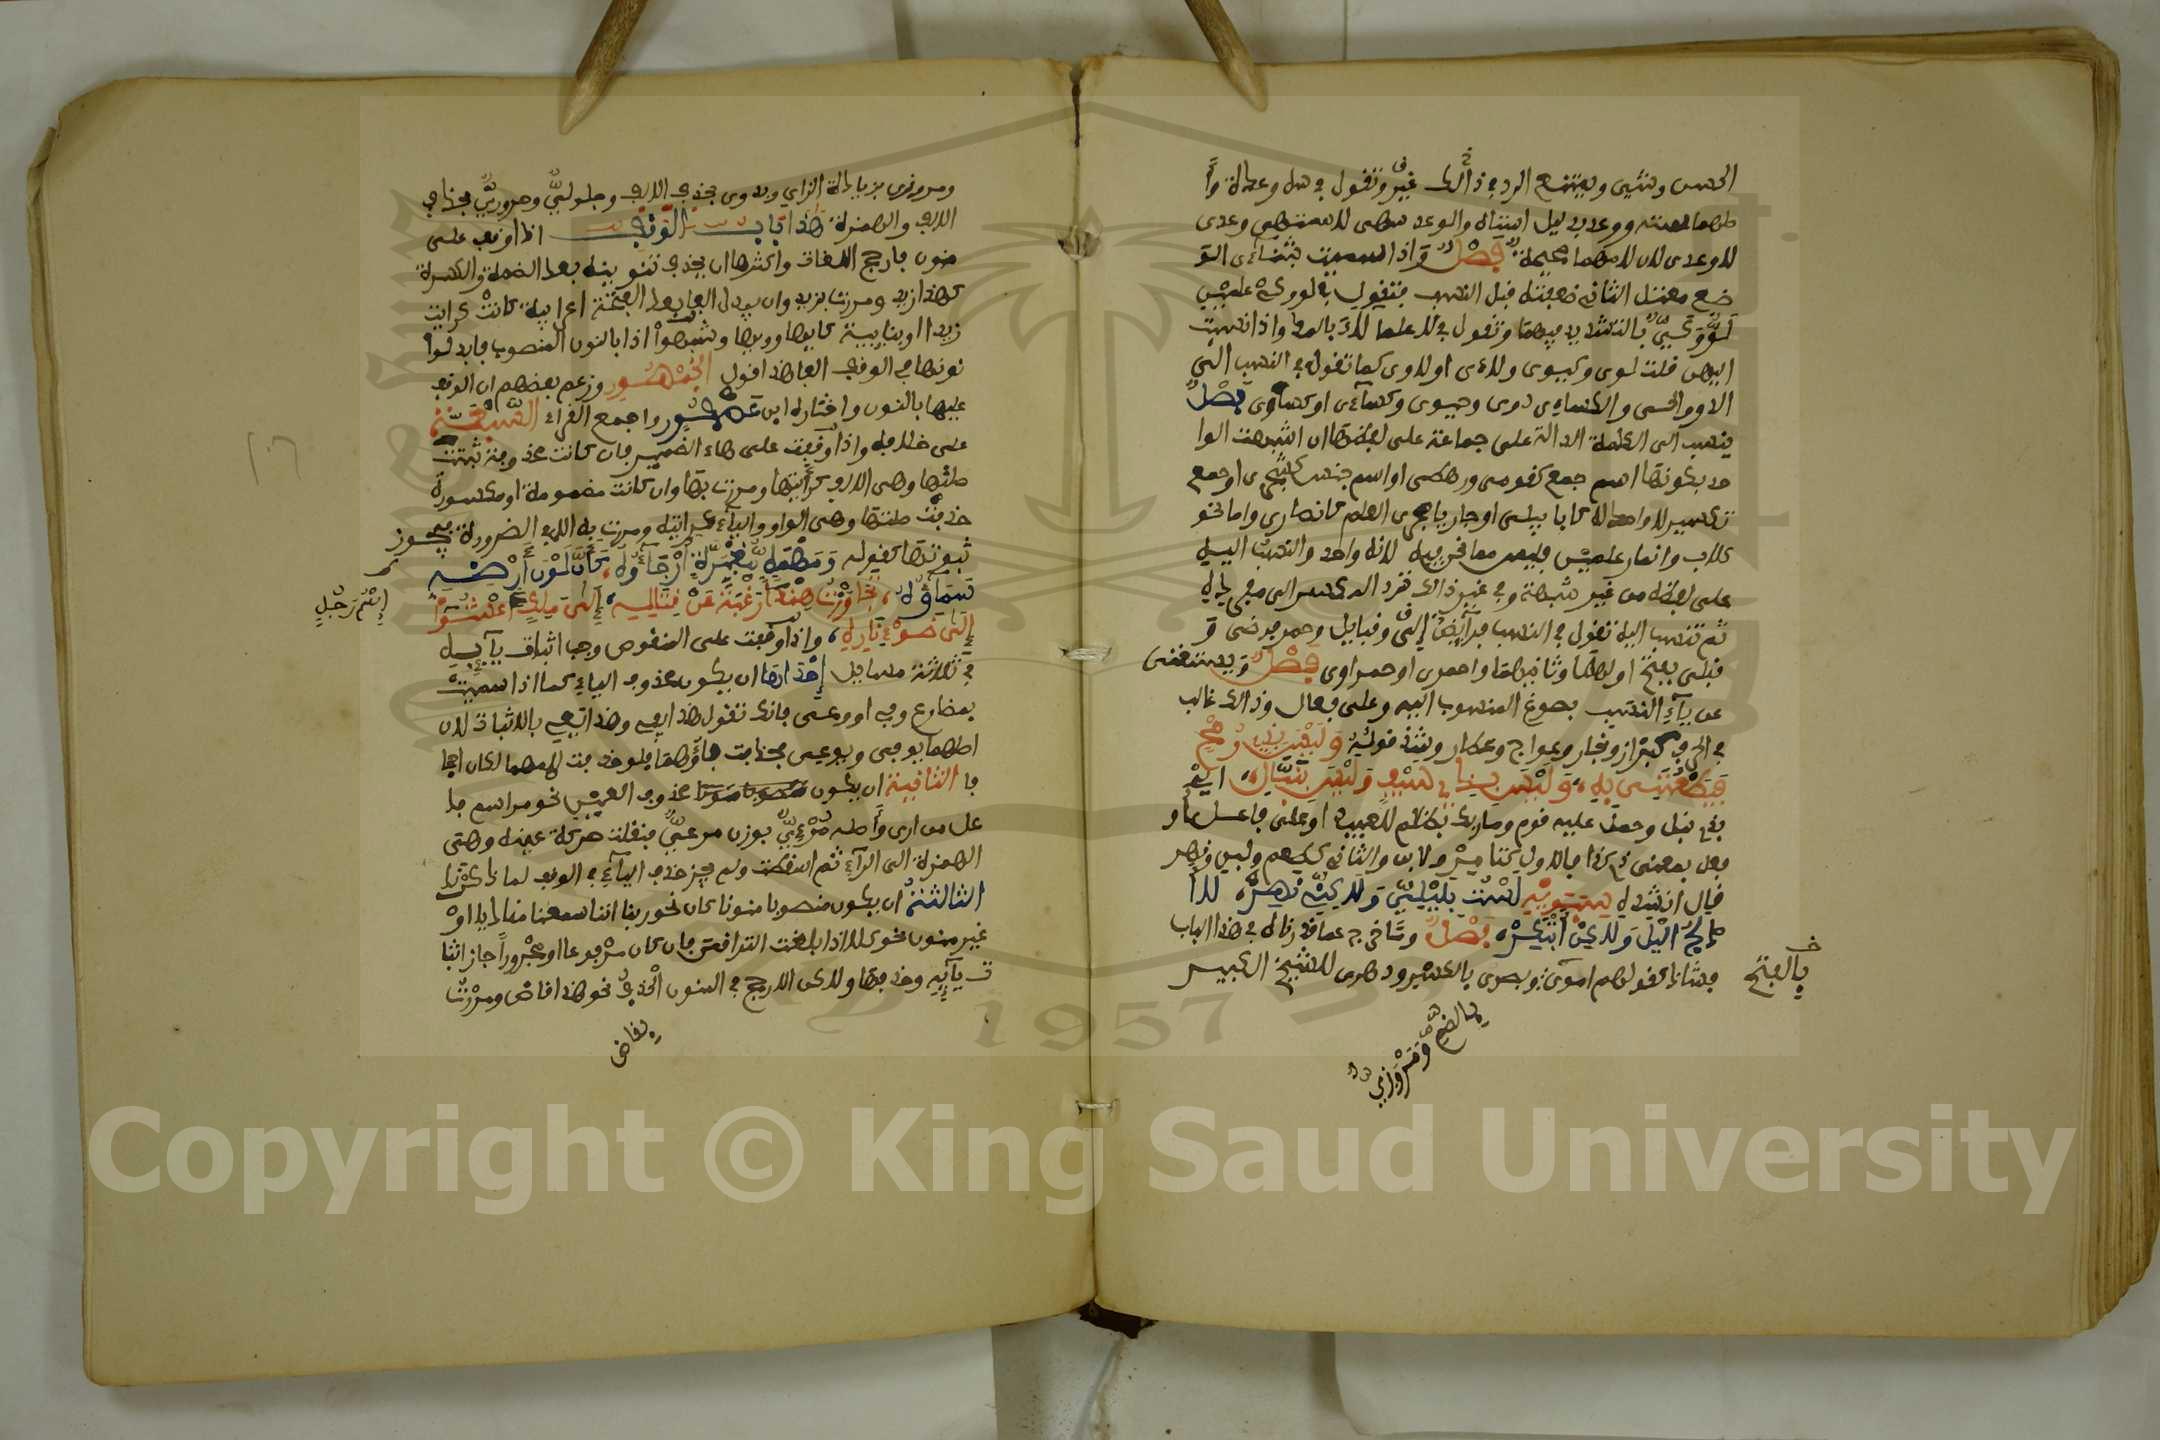 الحسن وشيى ويمتنع الرد في ذالك غير وتقول في سه وعدة وأ
صلهما سته ووعد بدليل استاه والوعد سهى لا ستهى وعدى
لا وعدى لان لامهما صحيحة فصل واذا سميت بثنائى الو
ضع معتل الثاني ضعفته قبل النسب فتقول في لو وكي علمين
لو وكي بالتشديد فيهما وتقول في لا علما لاء بالمد واذا نسبت
اليهن قلت لوى وكيوى ولائى او لاوى كما تقول في النسب الى
الدو والحي والكساء دوى وحيوى وكسائى او كساوى فصل
ينسب الى الكلمة الدالة على جماعة على لفظها ان اشبهت الوا
حد بكونها اسم جمع كقومى ورهطى او اسم جنس كشجرى او جمع
تكسير لا واحد له كابابيلى او جاريا مجرى العلم كانصارى واما نحو
كلاب وانمار علمين فليس مما نحن فيه لانه واحد والنسب اليه
على لفظه من غير شبهة وفي غير ذالك ترد المكسر الى مفرده
ثم تنسب اليه تقول في النسب فرائض إلى وقبايل وحمر فرضى و
قبلى بفتح اولهما وثانيهما واحمرى او حمراوى فصل ويستغنى
عن ياء النسب بصوغ المنسوب اليه وعلى فعال وذالك غالب
في الحرف كبزاز ونجار وعواج وعطار وشذ قوله وليس بذى رمح
فيطعننى به، وليس بذى سيف وليس بنبال، اى
بذى نبل وحمل عليه قوم وما ربك بظلام للعبيد او على فاعل او
فعل بمعنى ذى كذا فالاول كتامر ولابن والثاني كطعم ولبس ونهر
قال انشد له سيبويه لست بليلى ولكنى نهر، لا أ
دلج الليل ولكن أبتكر، فصل وما خرج عما قررناه في هذا الباب
فشاذ كقولهم اموى وبصرى بالكسر ودهرى للشيخ الكبير
بالفتح
بالضم ومروزي
ومروزى بزيادة الزاي وبدوى بحذف الالف وجلولي وحروري بحذف
الالف والهمزة هذا باب الوقف اذا وقف على
منون فارجح اللغات واكثرها ان يحذف تنوينه بعد الضمة والكسرة
كهذا زيد ومررت بزيد وان يبدل الفا بعد الفتحة اعرابية كانت كرايت
زيدا او بنايية كايها وويها وشبهوا اذا بالنون المنصوب فابدلوا
نونها في الوقف الفا هذا قول الجمهور وزعم بعضهم ان الوقف
عليها بالنون واختاره ابن عصفور واجمع القراء السبعة
على خلافه واذا وقفت على هاء الضمير فان كانت مفتوحة ثبتت
صلتها وهى الالف كرأيتها ومررت بها وان كانت مضمومة او مكسورة
حذفت صلتها وهى الواو والياء كرأيته ومررت به الا في الضرورة فيجوز
ثبوتها كقوله ومهمه مغبرة أرجاؤه، كأن لون أرضه
سماؤه، تجاوزت هندا رغبة عن قتاله، إلى ملك اعشوا
إلى ضوء ناره، واذا وقفت على المنقوص وجب اثبات يائه
في ثلاثة مسايل إحداها ان يكون محذوف الفاء كما اذا سميت
بمضارع وفى او وعى فانك تقول هذا يفى وهذا يعى بالاثبات لان
اصلهما يوفى ويوعى فحذفت فاؤهما فلو حذفت لامهما لكان اجحا
فا الثانية ان يكون محذوف العين نحو مر اسم فا
عل من ارى وأصله مرئي بوزن مرعي فنقلت حركة عينه وهى
الهمزة الى الراء ثم اسقطت ولم يجز حذف الياء في الوقف لما ذكرنا
الثالثة ان يكون منصوبا منونا كان نحو ربنا اننا سمعنا مناديا او
غير منون نحو كلا اذا بلغت التراقى فان كان مرفوعا او مجرورا جاز اثبا
ت يائه وحذفها ولكن الارجح في المنون الحذف نحو هذا قاض ومررت
إثم رجل
بقاض
١٠٦
1957
Copyright © King Saud University